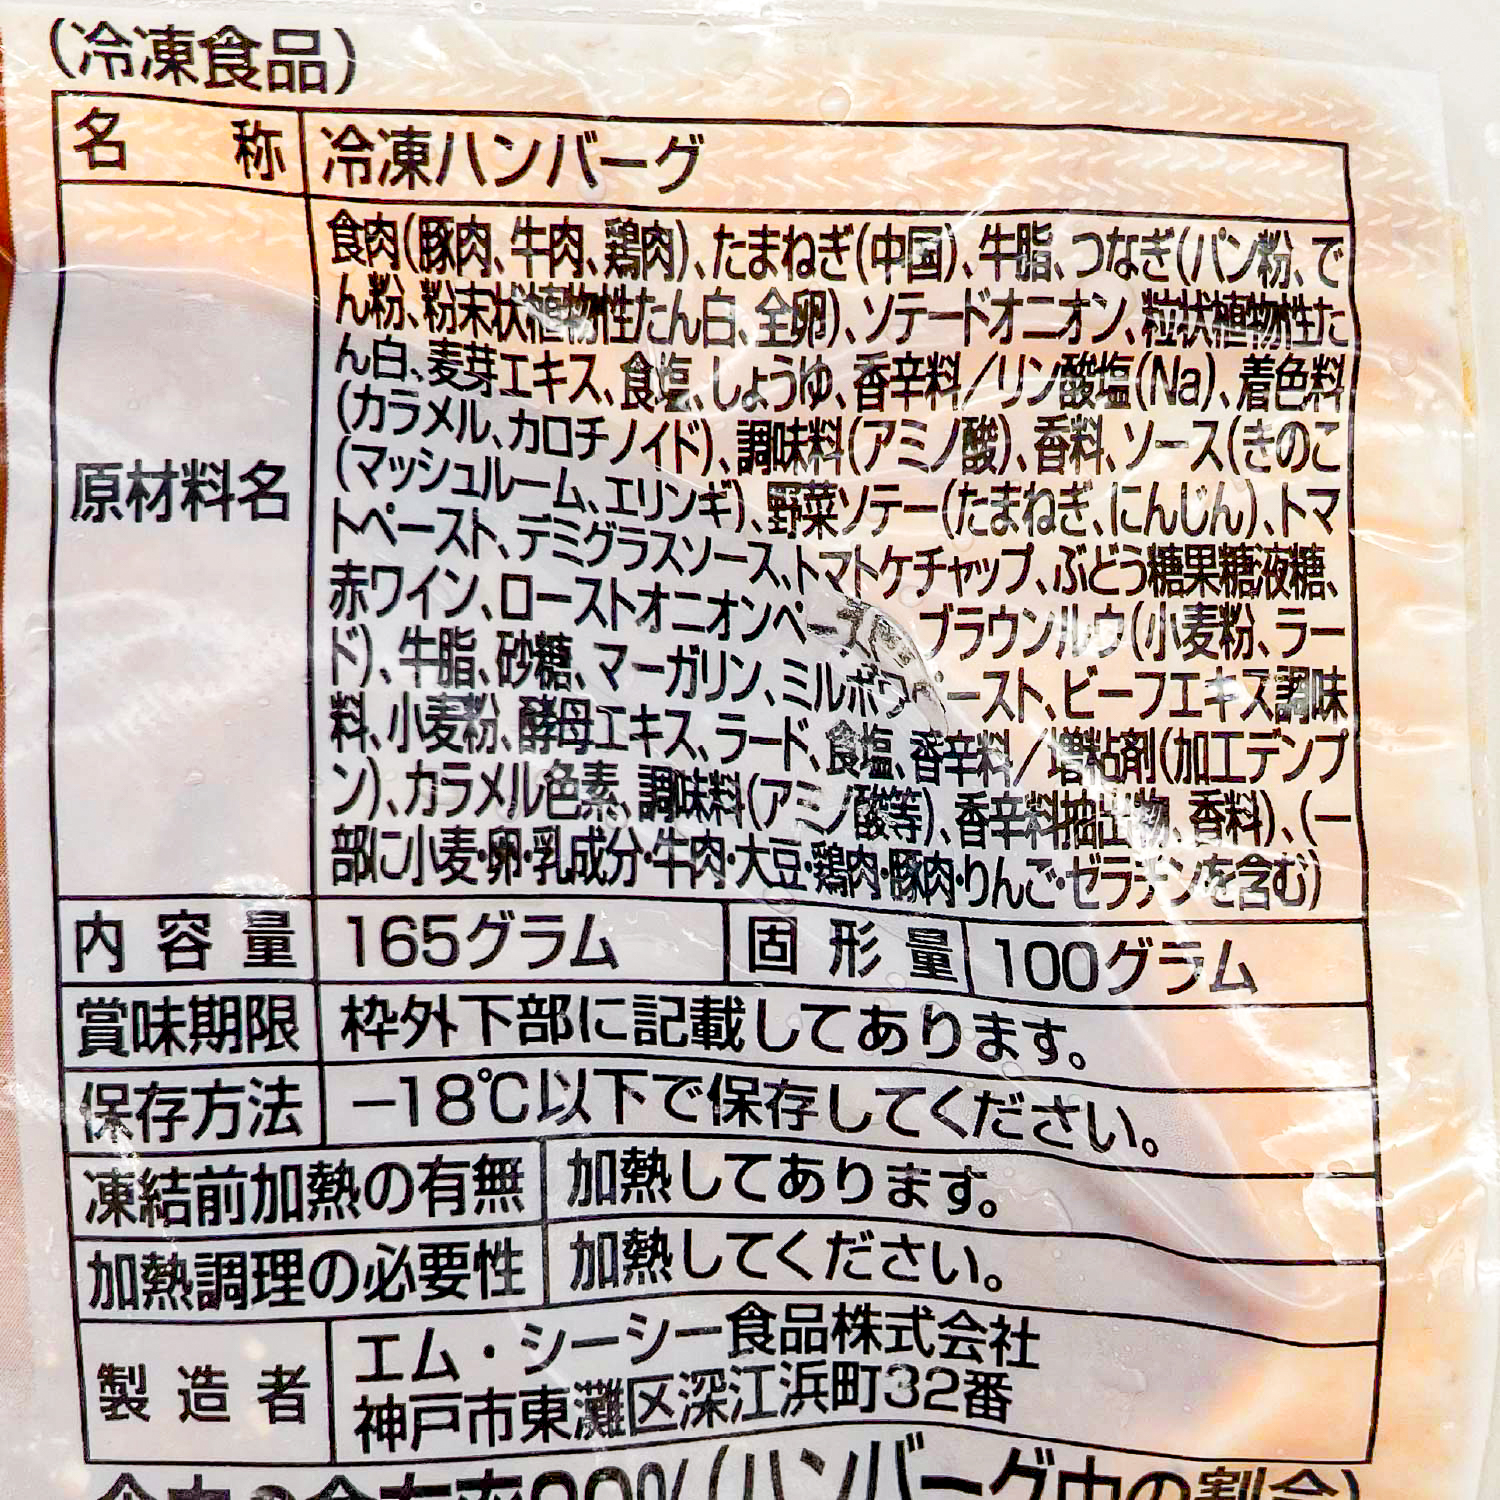 (冷凍食品)
名称 冷凍ハンバーグ
原材料名
食肉(豚肉、牛肉、鶏肉)、たまねぎ(中国)、牛脂、つなぎ(パン粉、で
ん粉、粉末状植物性たん白、全卵)、ソテードオニオン、粒状植物性た
ん白、麦芽エキス、食塩、しょうゆ、香辛料/リン酸塩(Na)、着色料
(カラメル、カロチノイド)、調味料(アミノ酸)、香料、ソース(きのこ
(マッシュルーム、エリンギ)、野菜ソテー(たまねぎ、にんじん)、トマ
トペースト、デミグラスソース、トマトケチャップ、ぶどう糖果糖液糖、
赤ワイン、ローストオニオンペースト、ブラウンルウ(小麦粉、ラー
ド)、牛脂、砂糖、マーガリン、ミルポワペースト、ビーフエキス調味
料、小麦粉、酵母エキス、ラード、食塩、香辛料/増粘剤(加工デンプ
ン)、カラメル色素、調味料(アミノ酸等)、香辛料抽出物、香料)、(一
部に小麦・卵・乳成分・牛肉・大豆・鶏肉・豚肉・りんご・ゼラチンを含む)
内容量 165グラム 固形量 100グラム
賞味期限 枠外下部に記載してあります。
保存方法 −18℃以下で保存してください。
凍結前加熱の有無 加熱してあります。
加熱調理の必要性 加熱してください。
製造者 エム・シーシー食品株式会社
神戸市東灘区深江浜町32番
(ハンバーグ中の割合)